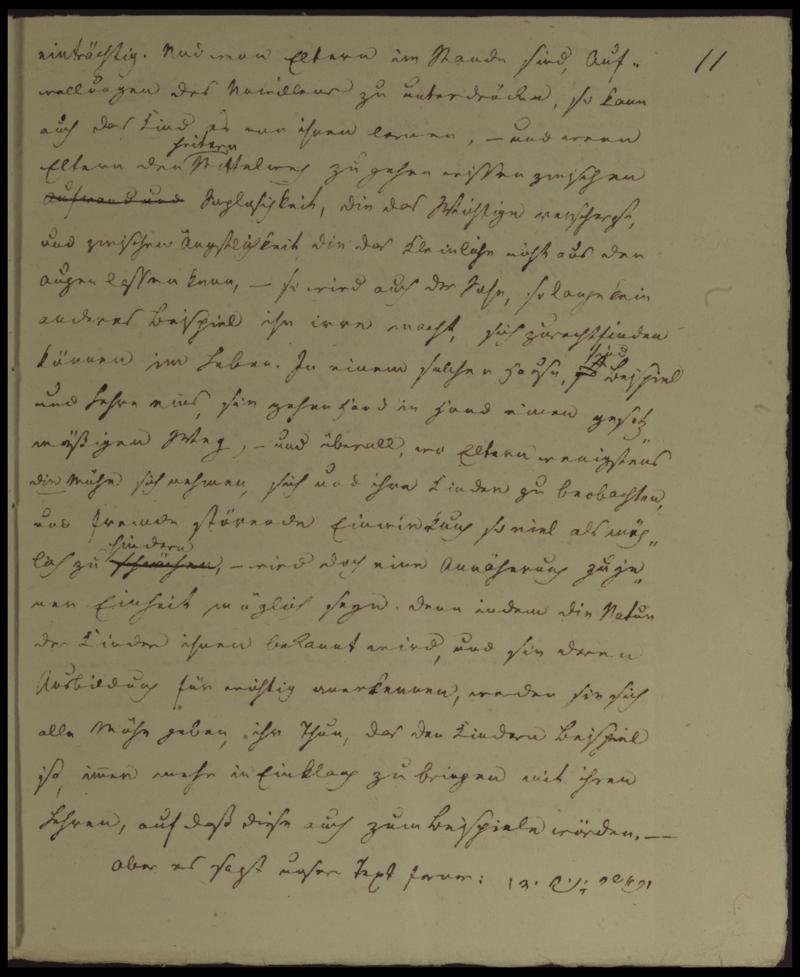 11
einträchtig. Und wenn Eltern im Stande sind, Auf-
wallungen des Unwillens zu unterdrücken, so kann
auch das Kind es von ihnen lernen, – und wenn
Eltern den Mittelweg zu gehen wissen zwischen
Sorglosigkeit, die das Wichtige verscherzt,
und zwischen Ängstlichkeit die das Kleinliche nicht aus den
Augen lassen kann, – so wird auch der Sohn, solange kein
anderes Beispiel ihn irre macht, sich zurechtfinden
können im Leben. In einem solchen Hause, sind Beispiel
und Lehre eins, sie gehen Hand in Hand einen gesetz-
mäßigen Weg, – und überall, wo Eltern wenigstens
die Mühe sich nehmen, sich und ihre Kinder zu beobachten,
und fremde störende Einwirkung so viel als mög-
lich zu hindern, – wird doch eine Annäherung zu je-
ner Einheit möglich seyn. denn indem die Natur
der Kinder ihnen bekannt wird, und sie deren
Ausbildung für wichtig anerkennen, werden sie sich
alle Mühe geben, ihr Thun, das den Kindern Beispiel
ist, immer mehr in Einklang zu bringen mit ihren
Lehren, auf daß diese auch zum Beispiele würden. –
Aber es sagt unser Text ferner: